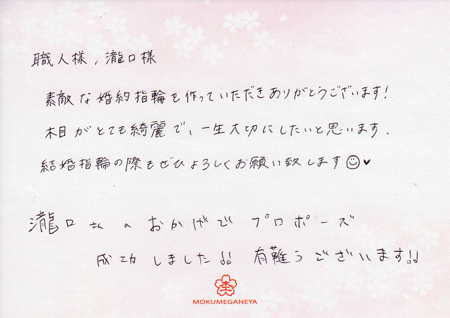 職人様，瀧口様
素敵な婚約指輪を作っていただきありがとうございます！
木目がとても綺麗で、一生大切にしたいと思います．
結婚指輪の際もぜひよろしくお願い致します☺♥
瀧口さんのおかげでプロポーズ
成功しました!! 有難うございます!!
MOKUMEGANEYA